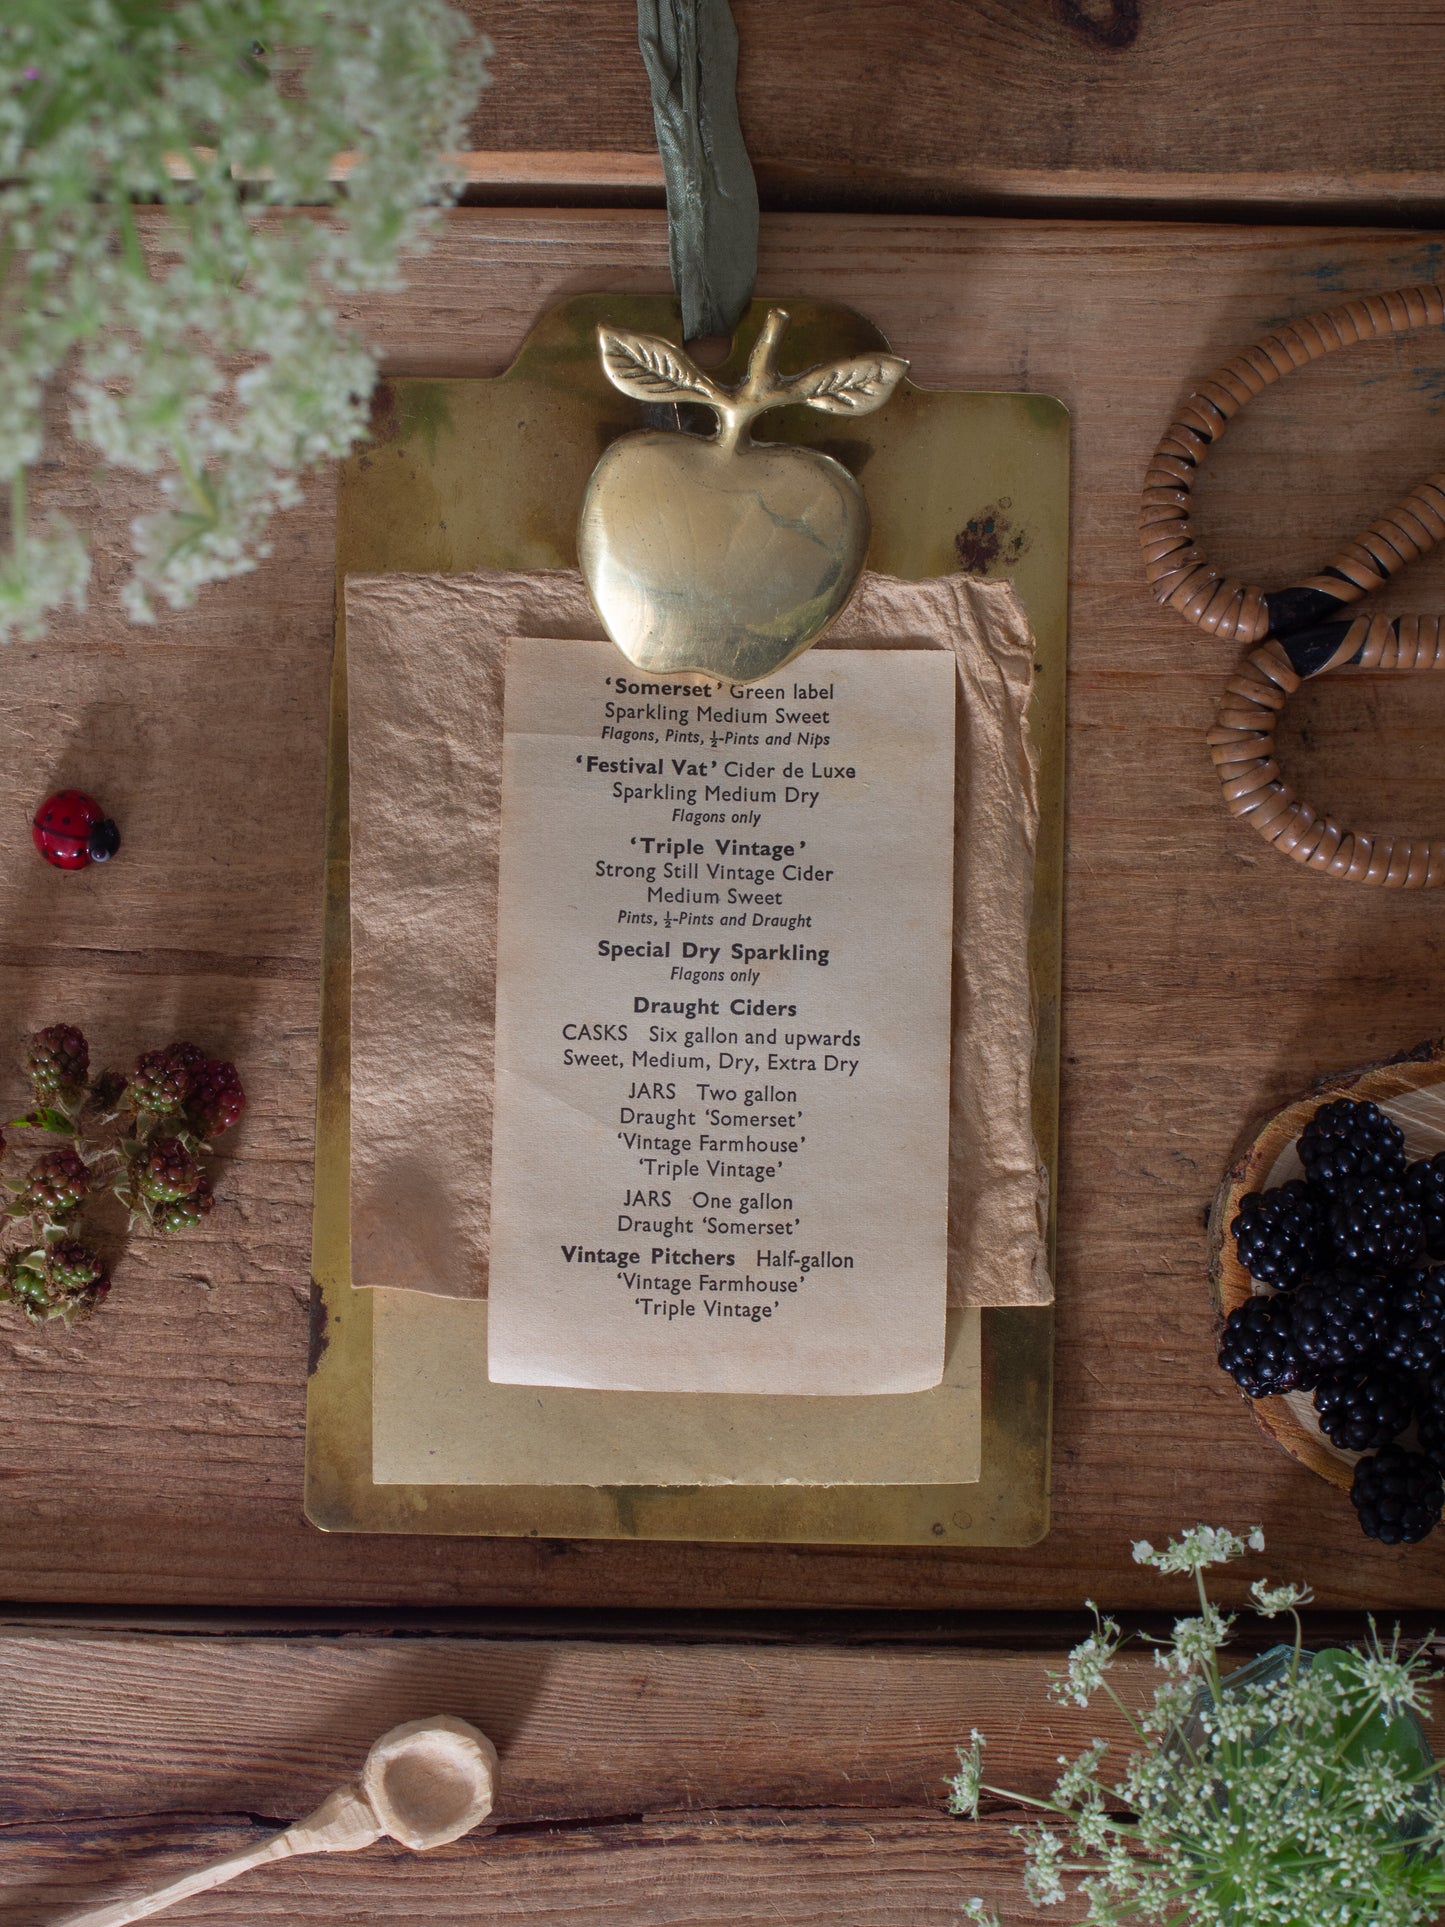 ‘Somerset’ Green label
Sparkling Medium Sweet
Flagons, Pints, ½-Pints and Nips
‘Festival Vat’ Cider de Luxe
Sparkling Medium Dry
Flagons only
‘Triple Vintage’
Strong Still Vintage Cider
Medium Sweet
Pints, ½-Pints and Draught
Special Dry Sparkling
Flagons only
Draught Ciders
CASKS Six gallon and upwards
Sweet, Medium, Dry, Extra Dry
JARS Two gallon
Draught ‘Somerset’
‘Vintage Farmhouse’
‘Triple Vintage’
JARS One gallon
Draught ‘Somerset’
Vintage Pitchers Half-gallon
‘Vintage Farmhouse’
‘Triple Vintage’